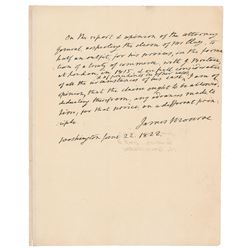 On the report & opinion of the attorney
General respecting the claim of Mr Clay, to
half an outfit, for his services, in the forma-
tion of a treaty of commerce, with G. Britain
at London, in 1815, & on full consideration
of all the circumstances of the case, I am of
opinion, that the claim ought to be allowed,
deducting therefrom, any advances made to
him, for that service, on a different prin-
ciple.
James Monroe
Washington June 22. 1822.